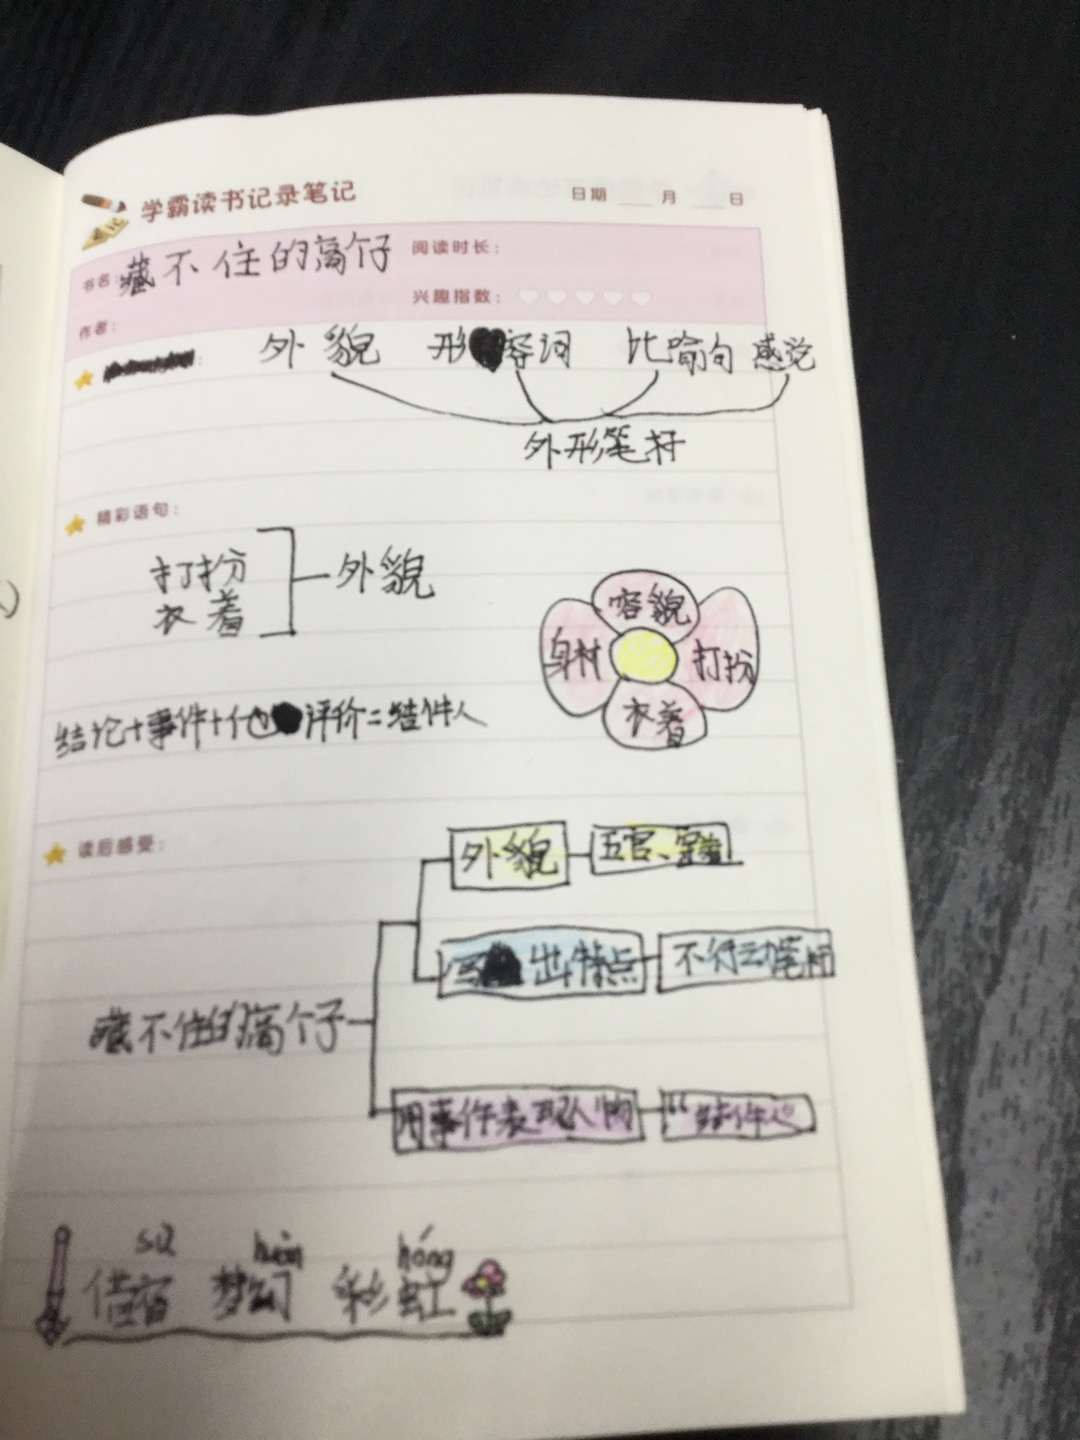 学霸读书记录笔记
日期 月 日
书名: 藏不住的高个子 阅读时长:
兴趣指数:
作者:
外貌 形容词 比喻句 感觉
外形笔杆
精彩语句:
打扮
衣着
外貌
容貌
身材 打扮
衣着
结论+事件+他 评价=结件人
读后感受:
外貌 五官、穿着
写 出特点 不行动笔
藏不住的高个子
用事件表现人物 “结件人”
sù huàn hóng
借宿 梦幻 彩虹